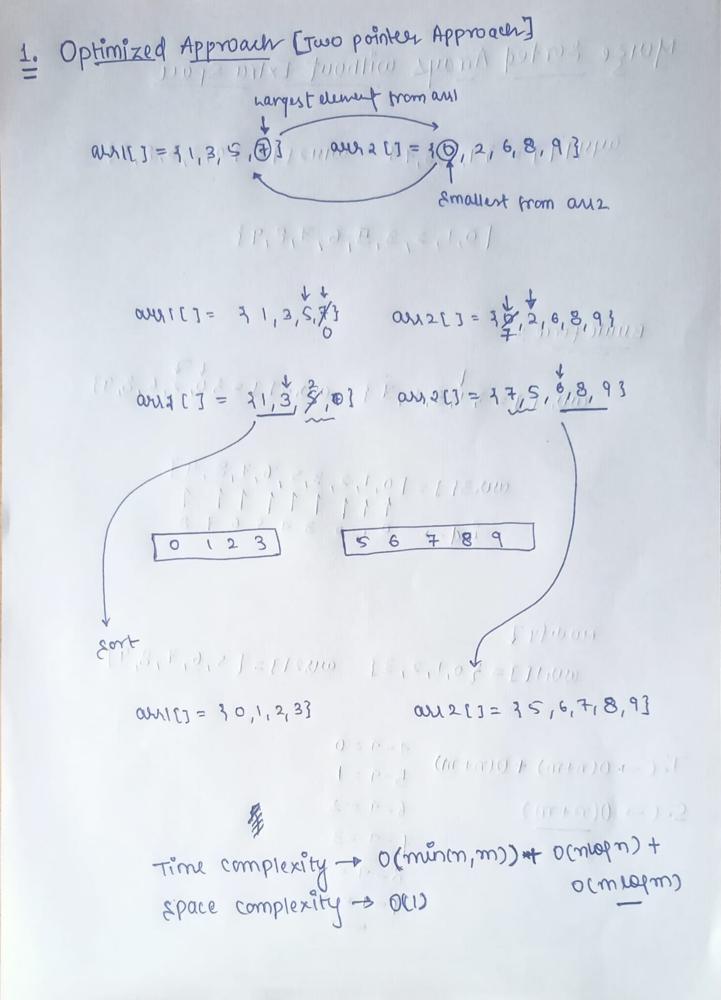 1. Optimized Approach [Two pointer Approach]
Largest element from arr1
arr1[] = {1, 3, 5, 7} arr2[] = {0, 2, 6, 8, 9}
Smallest from arr2
arr1[] = {1, 3, 5, 7} arr2[] = {0, 2, 6, 8, 9}
0 7
2
arr1[] = {1, 3, 5, 0} arr2[] = {7, 5, 6, 8, 9}
0 1 2 3 5 6 7 8 9
Sort
arr1[] = {0, 1, 2, 3} arr2[] = {5, 6, 7, 8, 9}
Time complexity → O(min(n, m)) + O(nlogn) +
O(mlogm)
Space complexity → O(1)